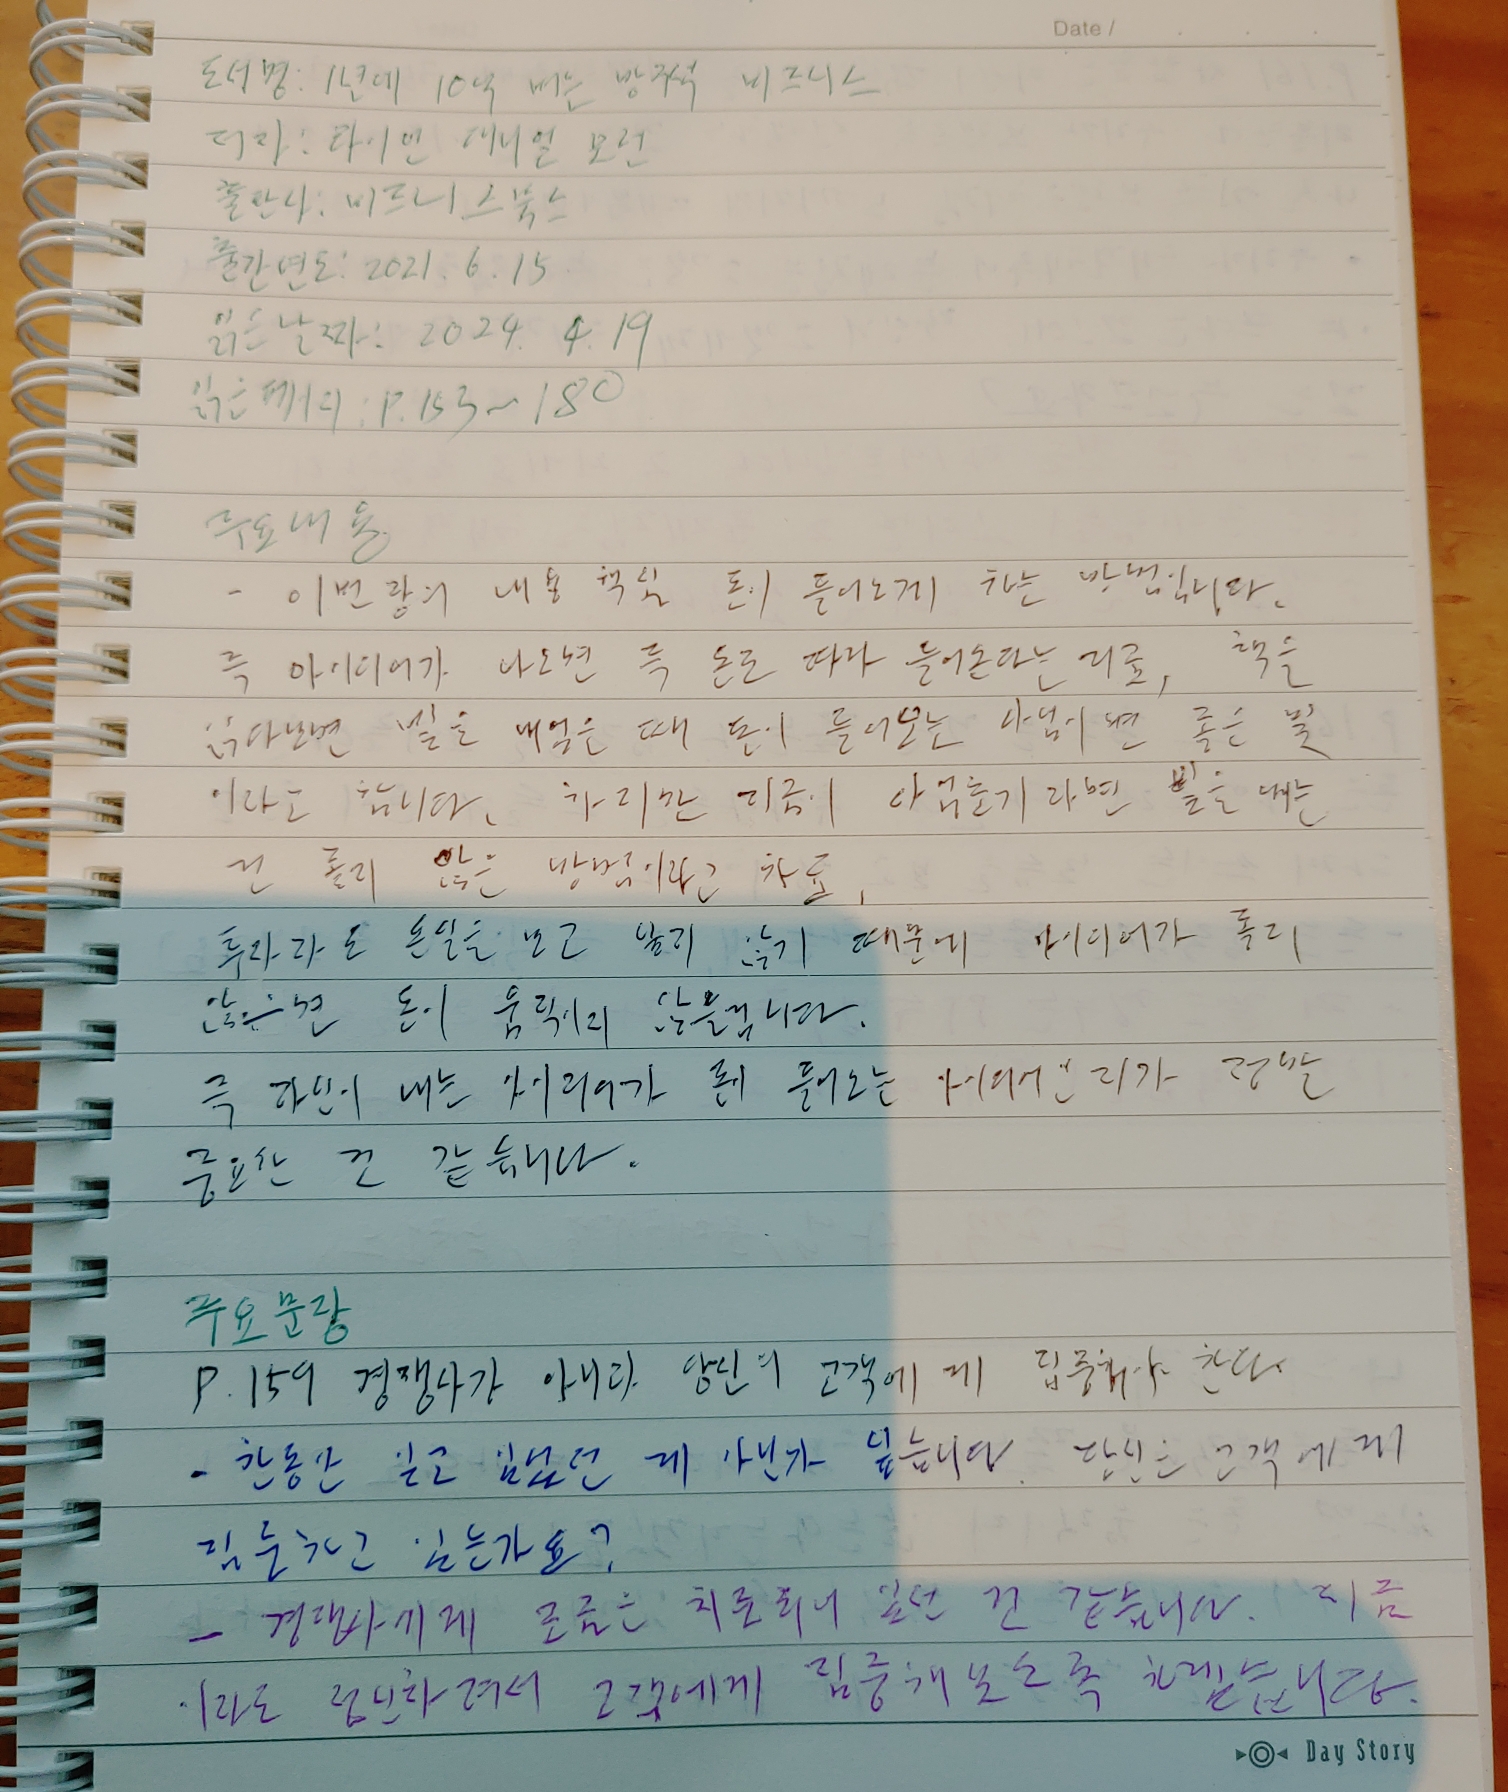 Date /
도서명: 1년에 10억 버는 방구석 비즈니스
저자: 라이언 대니얼 모런
출판사: 비즈니스북스
출간연도: 2021. 6. 15
읽은날짜: 2024. 4. 19
읽은페이지: P.153~180
주요내용
- 이번장의 내용 핵심 돈이 들어오게 하는 방법입니다.
즉 아이디어가 나오면 즉 돈도 따라 들어온다는 거죠, 책을
읽다보면 빚을 내었을 때 돈이 들어오는 사업이면 좋은 빚
이라고 합니다. 하지만 지금이 사업초기라면 빚을 내는
건 좋지 않은 방법이라고 하죠,
투자자도 손실을 보고 싶지 않기 때문에 아이디어가 좋지
않으면 돈이 움직이지 않을겁니다.
즉 자신이 내는 아이디어가 돈이 들어오는 아이디어인지가 정말
중요한 건 같습니다.
주요문장
P.159 경쟁사가 아니라 당신의 고객에게 집중해야 한다.
- 한동안 잊고 있었던 게 아닌가 싶습니다. 당신은 고객에게
집중하고 있는가요?
- 경쟁사에게 조금은 치중되어 있던 건 같습니다. 지금
이라도 점검하면서 고객에게 집중해보도록 하겠습니다.
Day Story